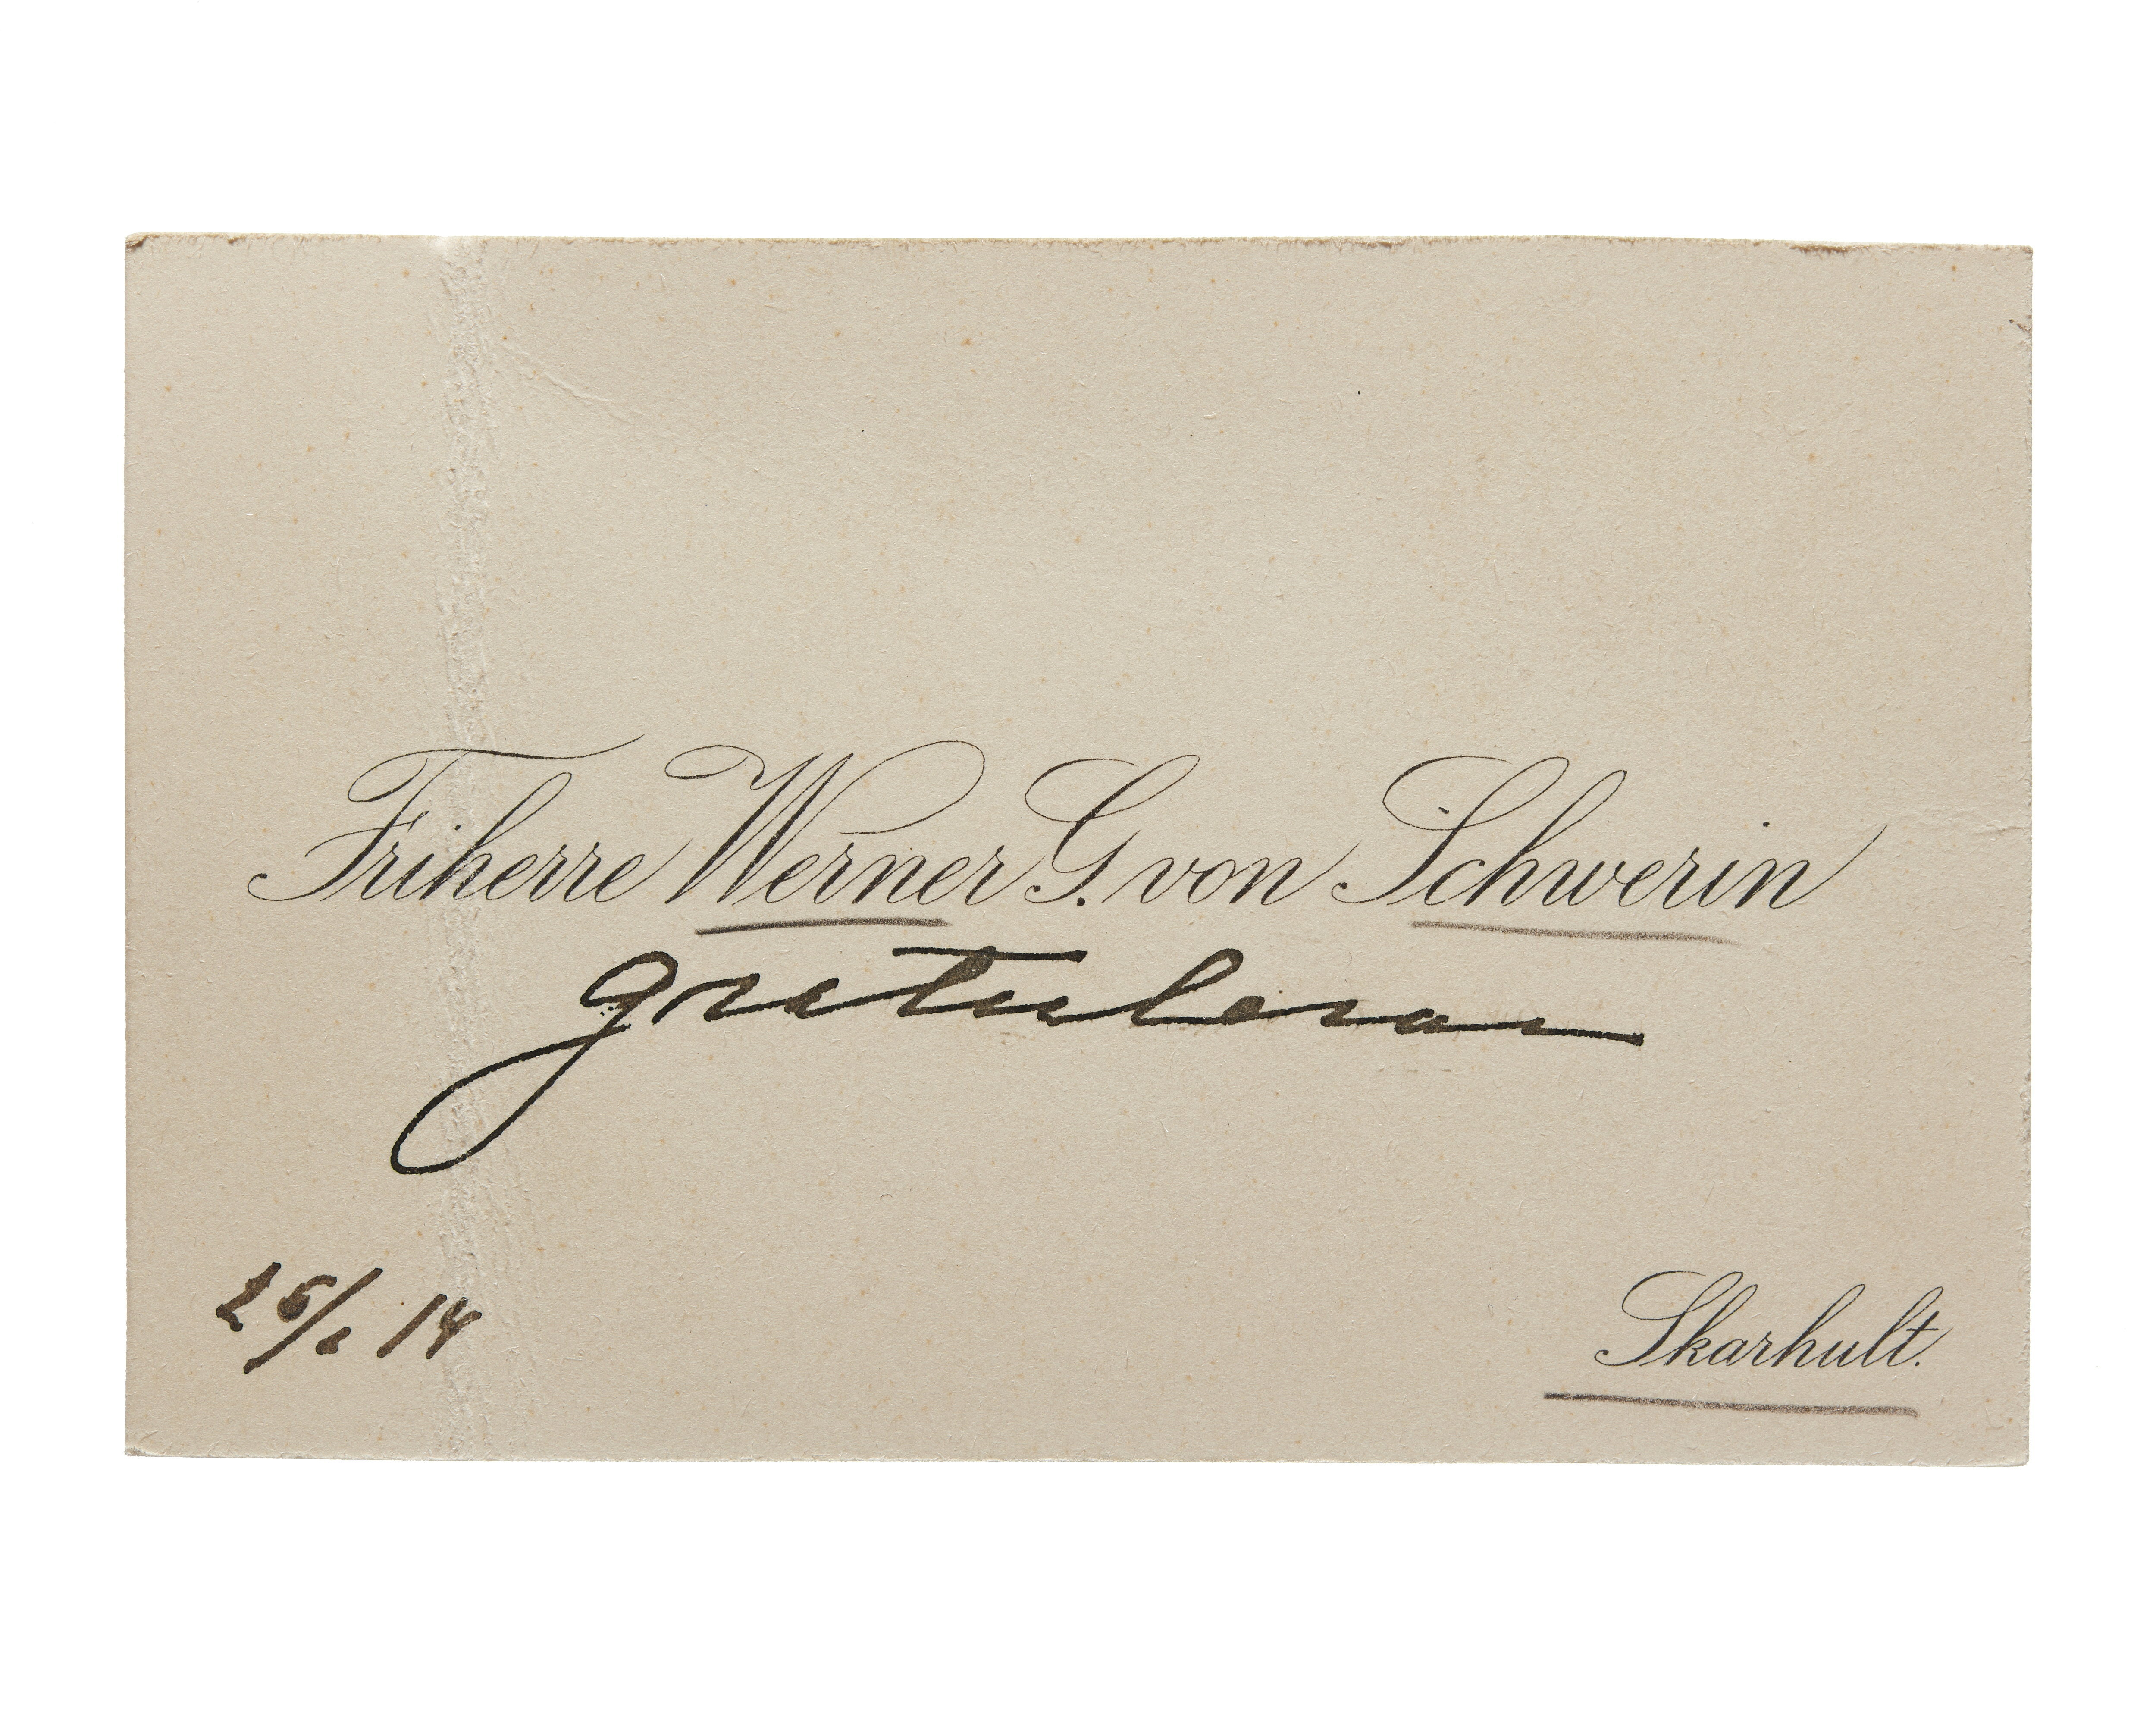 Friherre Werner G. von Schwerin
gratulerar
14
Skarhult.